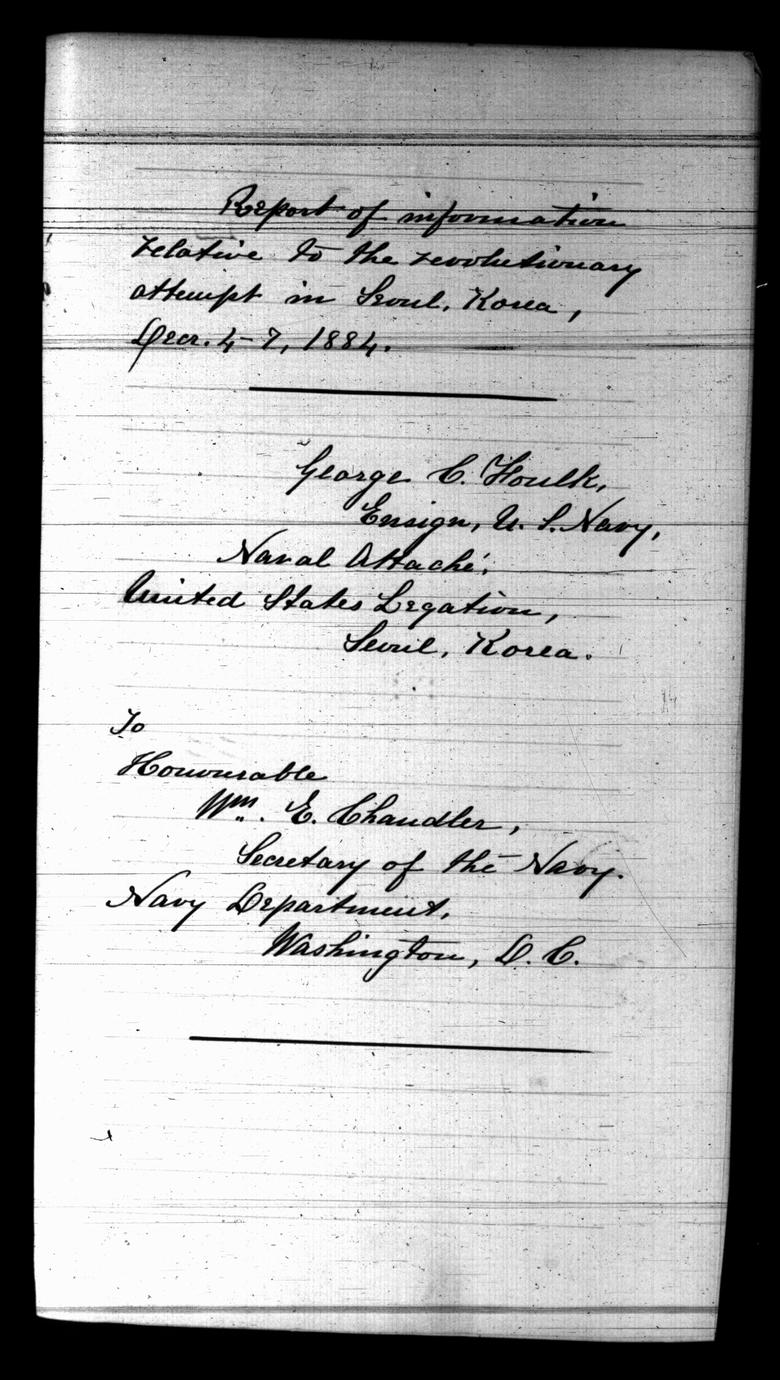 Report of information
relative to the revolutionary
attempt in Seoul, Korea,
Decr. 4-7, 1884.
George C. Foulk,
Ensign, U. S. Navy,
Naval Attaché,
United States Legation,
Seoul, Korea.
To
Honourable
Wm. E. Chandler,
Secretary of the Navy.
Navy Department,
Washington, D. C.